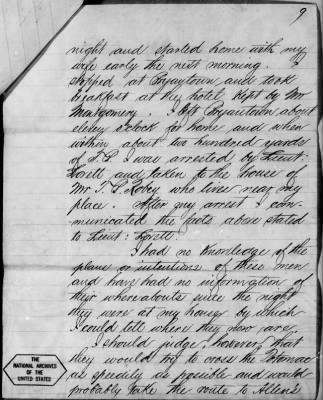 9
night and started home with my
wife early the next morning. I
stopped at Bryantown and took
breakfast at the hotel kept by Mr
Montgomery. I left Bryantown about
eleven O'clock for home and when
within about two hundred yards
of T.B. I was arrested by Lieut:
Lovett and taken to the house of
Mr T. L. Robey who lives near my
place. After my arrest I com-
municated the facts above stated
to Lieut: Lovett.
I had no knowledge of the
plans or intentions of these men
and have had no information of
their whereabouts since the night
they were at my house by which
I could tell where they now are.
I should judge however that
they would try to cross the Potomac
as speedily as possible and would
probably take the route to Allens
THE
NATIONAL ARCHIVES
OF THE
UNITED STATES